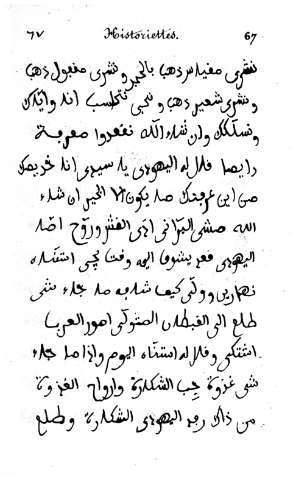 ٦٧ Historiettes. 67
نشري مفياس ذهب بالخير ونشري مغفول ذهب
ونشري شعير ذهب ونجي نحاسب انا واياك
ونسلكك وان شاء الله نقعدوا معرفة
دايما فال له اليهودي يا سيدي انا خريصك
من اين عرفتك ما يكون الا الخير ان شاء
الله مشى البراني
اليهودي فعد يشوف اليه وفت يجي استناه
نهارين وولى كيف شابه ما جاء شي
طلع الى القبطان المتولي امور العرب
اشتكى وفال له استناه اليوم واذا ما جاء
شي غزوة جيب الشكارة وارواح الغزوة
من ذاك رفد اليهودي الشكارة وطلع